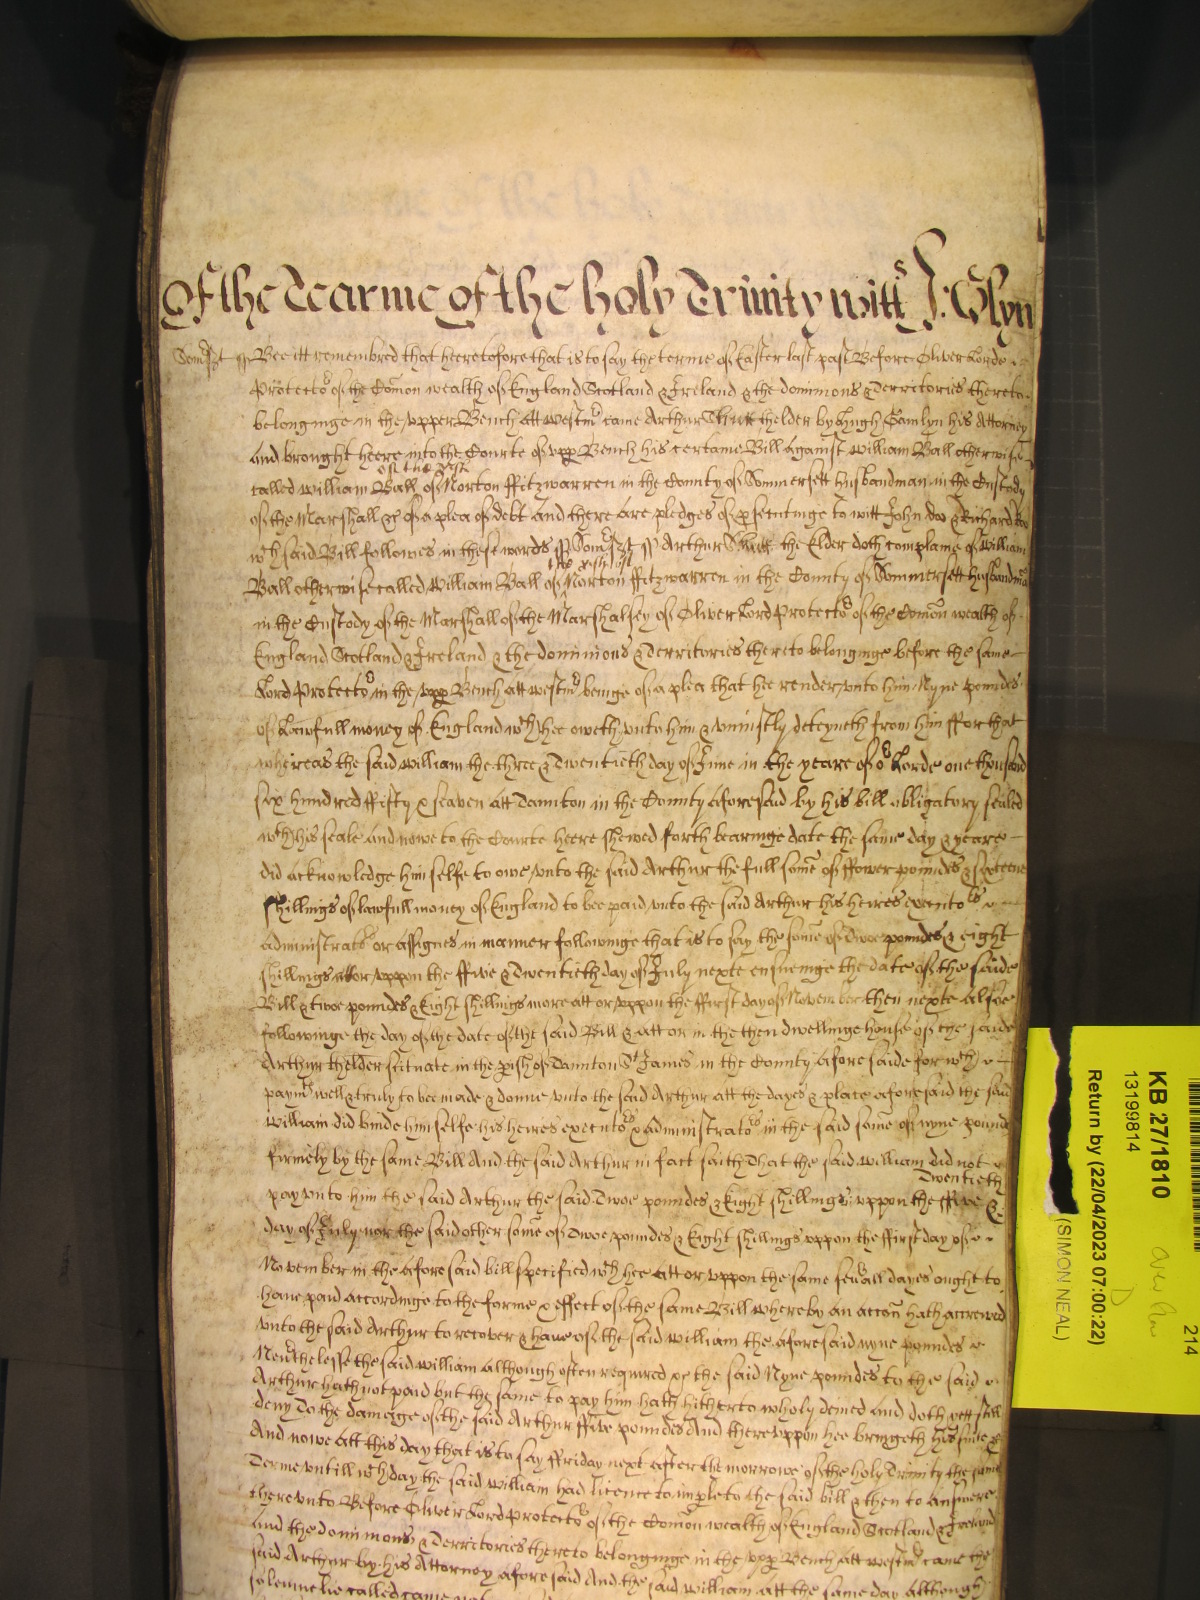 Of the Tearme of the holy Trinity witts J: Glyn
Somsett ss Bee itt remembred that heeretofore that is to say the terme of Easter last past Before Oliver Lorde
Protector of the Comon wealth of England Scotland & Ireland & the dominions & Territories thereto
belonginge in the vpper Bench att westmr came Arthur thelder by Hugh Gamlyn his Attorney
And brought heere into the Courte of vpp Bench his certaine Bill Against William Ball otherwise
of the west
called William Ball of Norton ffitzwarren in the County of Sommersett husbandman in the Custody
of the Marshall &c of a plea of debt And there are pledges of psecutinge to witt John doo & Richard Roo
wch said Bill followes in these words ss Somsett ss Arthur the Elder doth complaine of William
the west of
Ball otherwise called William Ball of Norton ffitzwarren in the County of Sommersett husbandman
in the Custody of the Marshall of the Marshalsey of Oliver Lord Protector of the Comon wealth of
England Scotland & Ireland & the dominions & Territories thereto belonginge before the same
Lord Protector in the vpp Bench att westmr beinge of a plea that hee render vnto him Nyne poundes
of Lawfull money of England wch hee oweth vnto him & vniustly deteyneth from him ffor that
whereas the said William the three & Twentieth day of June in the yeare of or Lorde one thousand
six hundred ffifty & seaven att Taunton in the County aforesaid by his bill obligatory sealed
wth his seale And nowe to the Courte heere shewed forth bearinge date the same day & yeare
did acknowledge himselfe to owe vnto the said Arthur the full some of ffower poundes & sixteene
shillings of lawfull money of England to bee paid vnto the said Arthur his heires executors
administrators or assignes in manner followinge that is to say the some of Twoe poundes & eight
shillings att or vppon the ffive & Twentieth day of July nexte ensueinge the date of the saide
Bill & twoe poundes & Eight shillings more att or vppon the ffirst day of November then nexte alsoe
followinge the day of the date of the said Bill & att or in the then dwellinge house of the saide
Arthur thelder scituate in the pish of Taunton St James in the County aforesaide for wch
paymt well & truly to bee made & donne vnto the said Arthur att the dayes & place aforesaid the said
William did binde himselfe his heires executors & administrators in the said some of nyne pounds
firmely by the same Bill And the said Arthur in fact saith That the said William did not
Twentieth
pay vnto him the said Arthur the said Twoe poundes & Eight shillings vppon the ffive &
day of July nor the said other some of Twoe poundes & Eight shillings vppon the ffirst day of
November in the aforesaid bill specified wch hee att or vppon the same seuall dayes ought to
haue paid accordinge to the forme & effect of the same Bill whereby an accon hath accrewed
vnto the said Arthur to recover & haue of the said William the aforesaid nyne poundes
Neuthelesse the said William although often required of the said Nyne poundes to the said
Arthur hath not paid but the same to pay him hath hitherto wholy denied And doth yett still
deny To the damage of the said Arthur ffive poundes And therevppon hee bringeth his suite &c
And nowe att this day that is to say ffriday next after the morrowe of the holy Trinity the same
Terme vntill wch day the said William had licence to imple to the said bill & then to answere
therevnto Before Oliver Lord Protector of the Comon wealth of England Scotland & Ireland
And the dominions & Territories thereto belonginge in the vpp Bench att westmr came the
said Arthur by his Attorney aforesaid And the said William att the same day Although
solemnelie called came not
KB 27/1810
13199814
Return by (22/04/2023 07:00:22)
(SIMON NEAL)
214